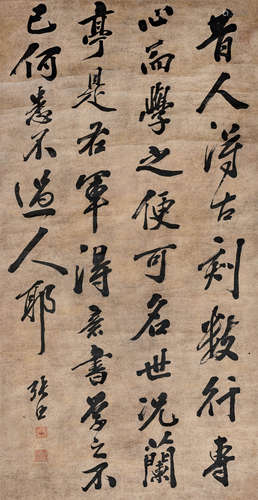 昔人得古刻数行专
心而學之便可名世况蘭
亭是右軍得意書學之不
已何患不過人耶
張